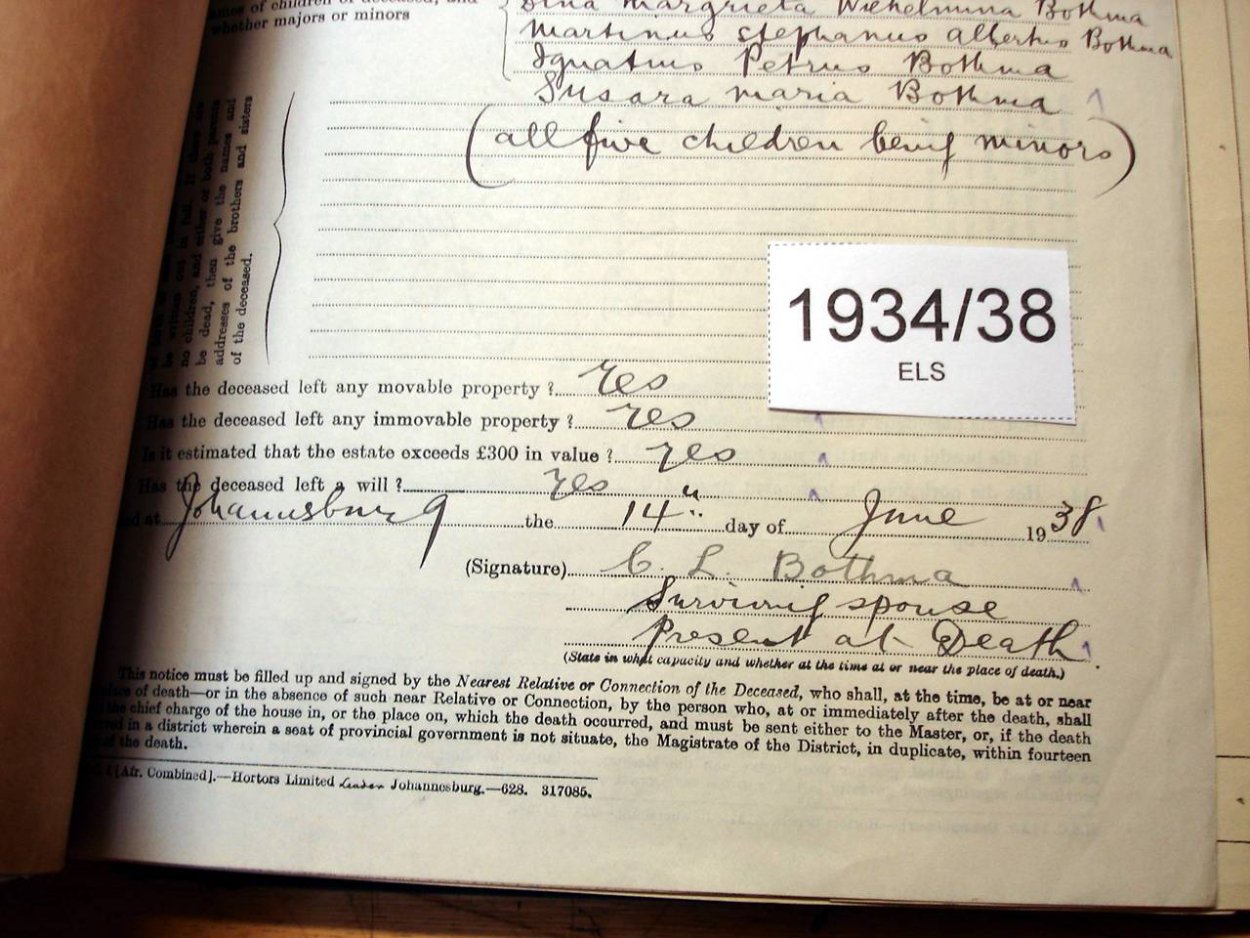 names of children of deceased, and
whether majors or minors
Dina Margrieta Wilhelmina Bothma
Martinus Stephanus Albertus Bothma
Ignatius Petrus Bothma
Susara Maria Bothma
(all five children being minors)
be written out in full. If there are
no children, and either or both parents
be dead, then give the names and
addresses of the brothers and sisters
of the deceased.
1934/38
ELS
Has the deceased left any movable property ? Yes
Has the deceased left any immovable property ? Yes
Is it estimated that the estate exceeds £300 in value ? Yes
Has the deceased left a will ? Yes
at Johannesburg the 14" day of June 1938
(Signature) C. L. Bothma
Surviving spouse
Present at Death
(State in what capacity and whether at the time at or near the place of death.)
This notice must be filled up and signed by the Nearest Relative or Connection of the Deceased, who shall, at the time, be at or near
of death—or in the absence of such near Relative or Connection, by the person who, at or immediately after the death, shall
the chief charge of the house in, or the place on, which the death occurred, and must be sent either to the Master, or, if the death
in a district wherein a seat of provincial government is not situate, the Magistrate of the District, in duplicate, within fourteen
of the death.
[Afr. Combined].—Hortors Limited London Johannesburg.—628. 317085.